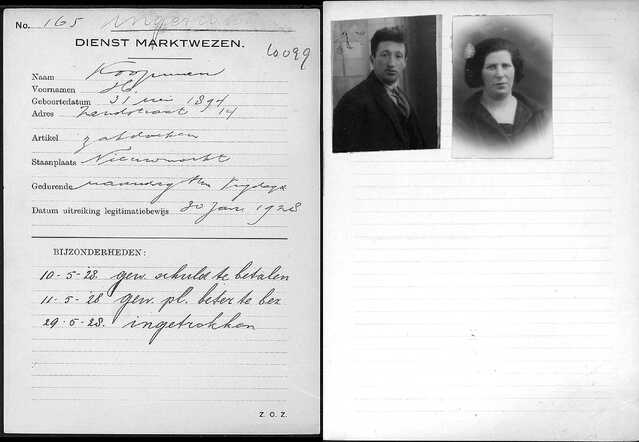 No. 165 ingetrokken
DIENST MARKTWEZEN.
60099
Naam Koopman
Voornamen H.
Geboortedatum 31 mei 1894
Adres Zandstraat 14
Artikel zakdoeken
Staanplaats Nieuwmarkt
Gedurende maandag t/m Vrijdag
Datum uitreiking legitimatiebewijs 30 Jan 1928
BIJZONDERHEDEN:
10-5-28 gew. schuld te betalen
11-5-28 gew. pl. beter te bez
29-5-28. ingetrokken
Z.O.Z.